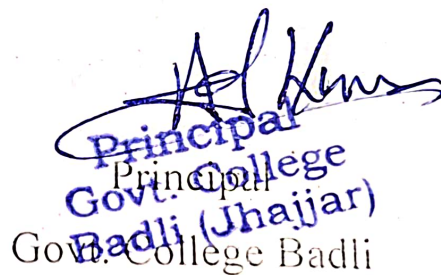 Principal
Govt. College
Badli (Jhajjar)
Principal
Govt. College Badli